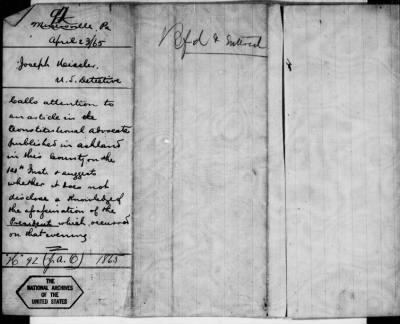 Minersville, Pa
April 23/65
Joseph Heisler.
U.S. Detective
Calls attention to
an article in the
Constitutional Advocate
published in Ashland
in this County on the
14th Inst. & suggests
whether it does not
disclose a knowledge of
the assassination of the
President which occurred
on that evening
No 92 (J.A.O) 1865
THE
NATIONAL ARCHIVES
OF THE
UNITED STATES
Rfd & Entered